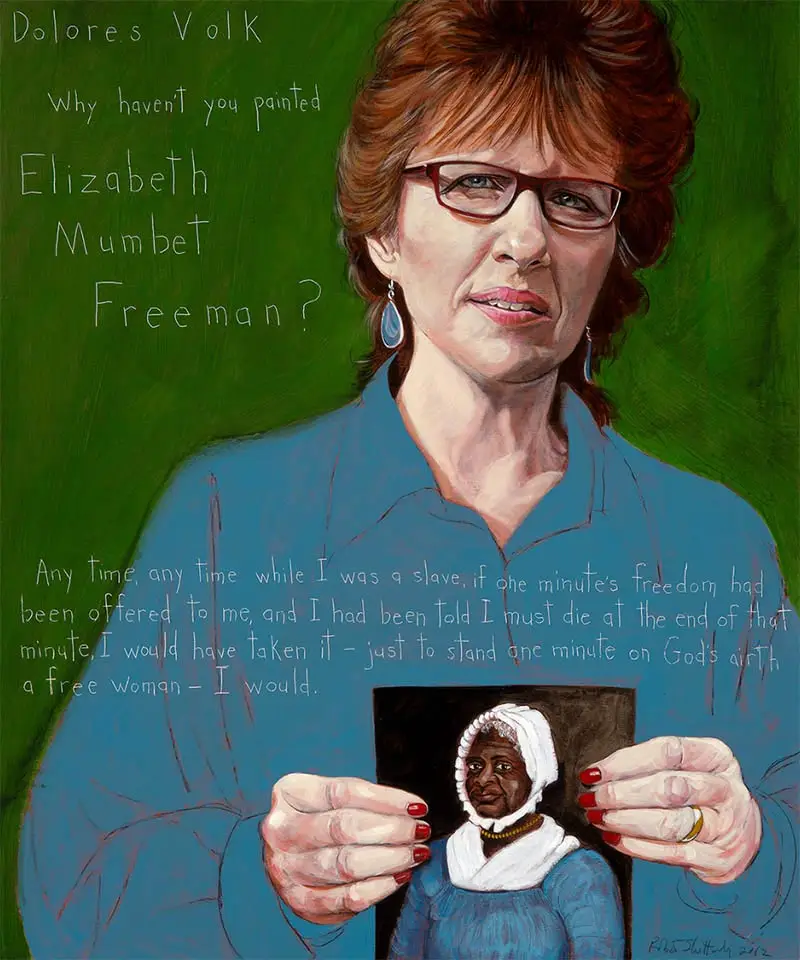 Dolores Volk
Why haven't you painted
Elizabeth
Mumbet
Freeman?
Any time, any time while I was a slave, if one minute's freedom had
been offered to me, and I had been told I must die at the end of that
minute, I would have taken it – just to stand one minute on God's airth
a free woman – I would.
Robert Shetterly 2012